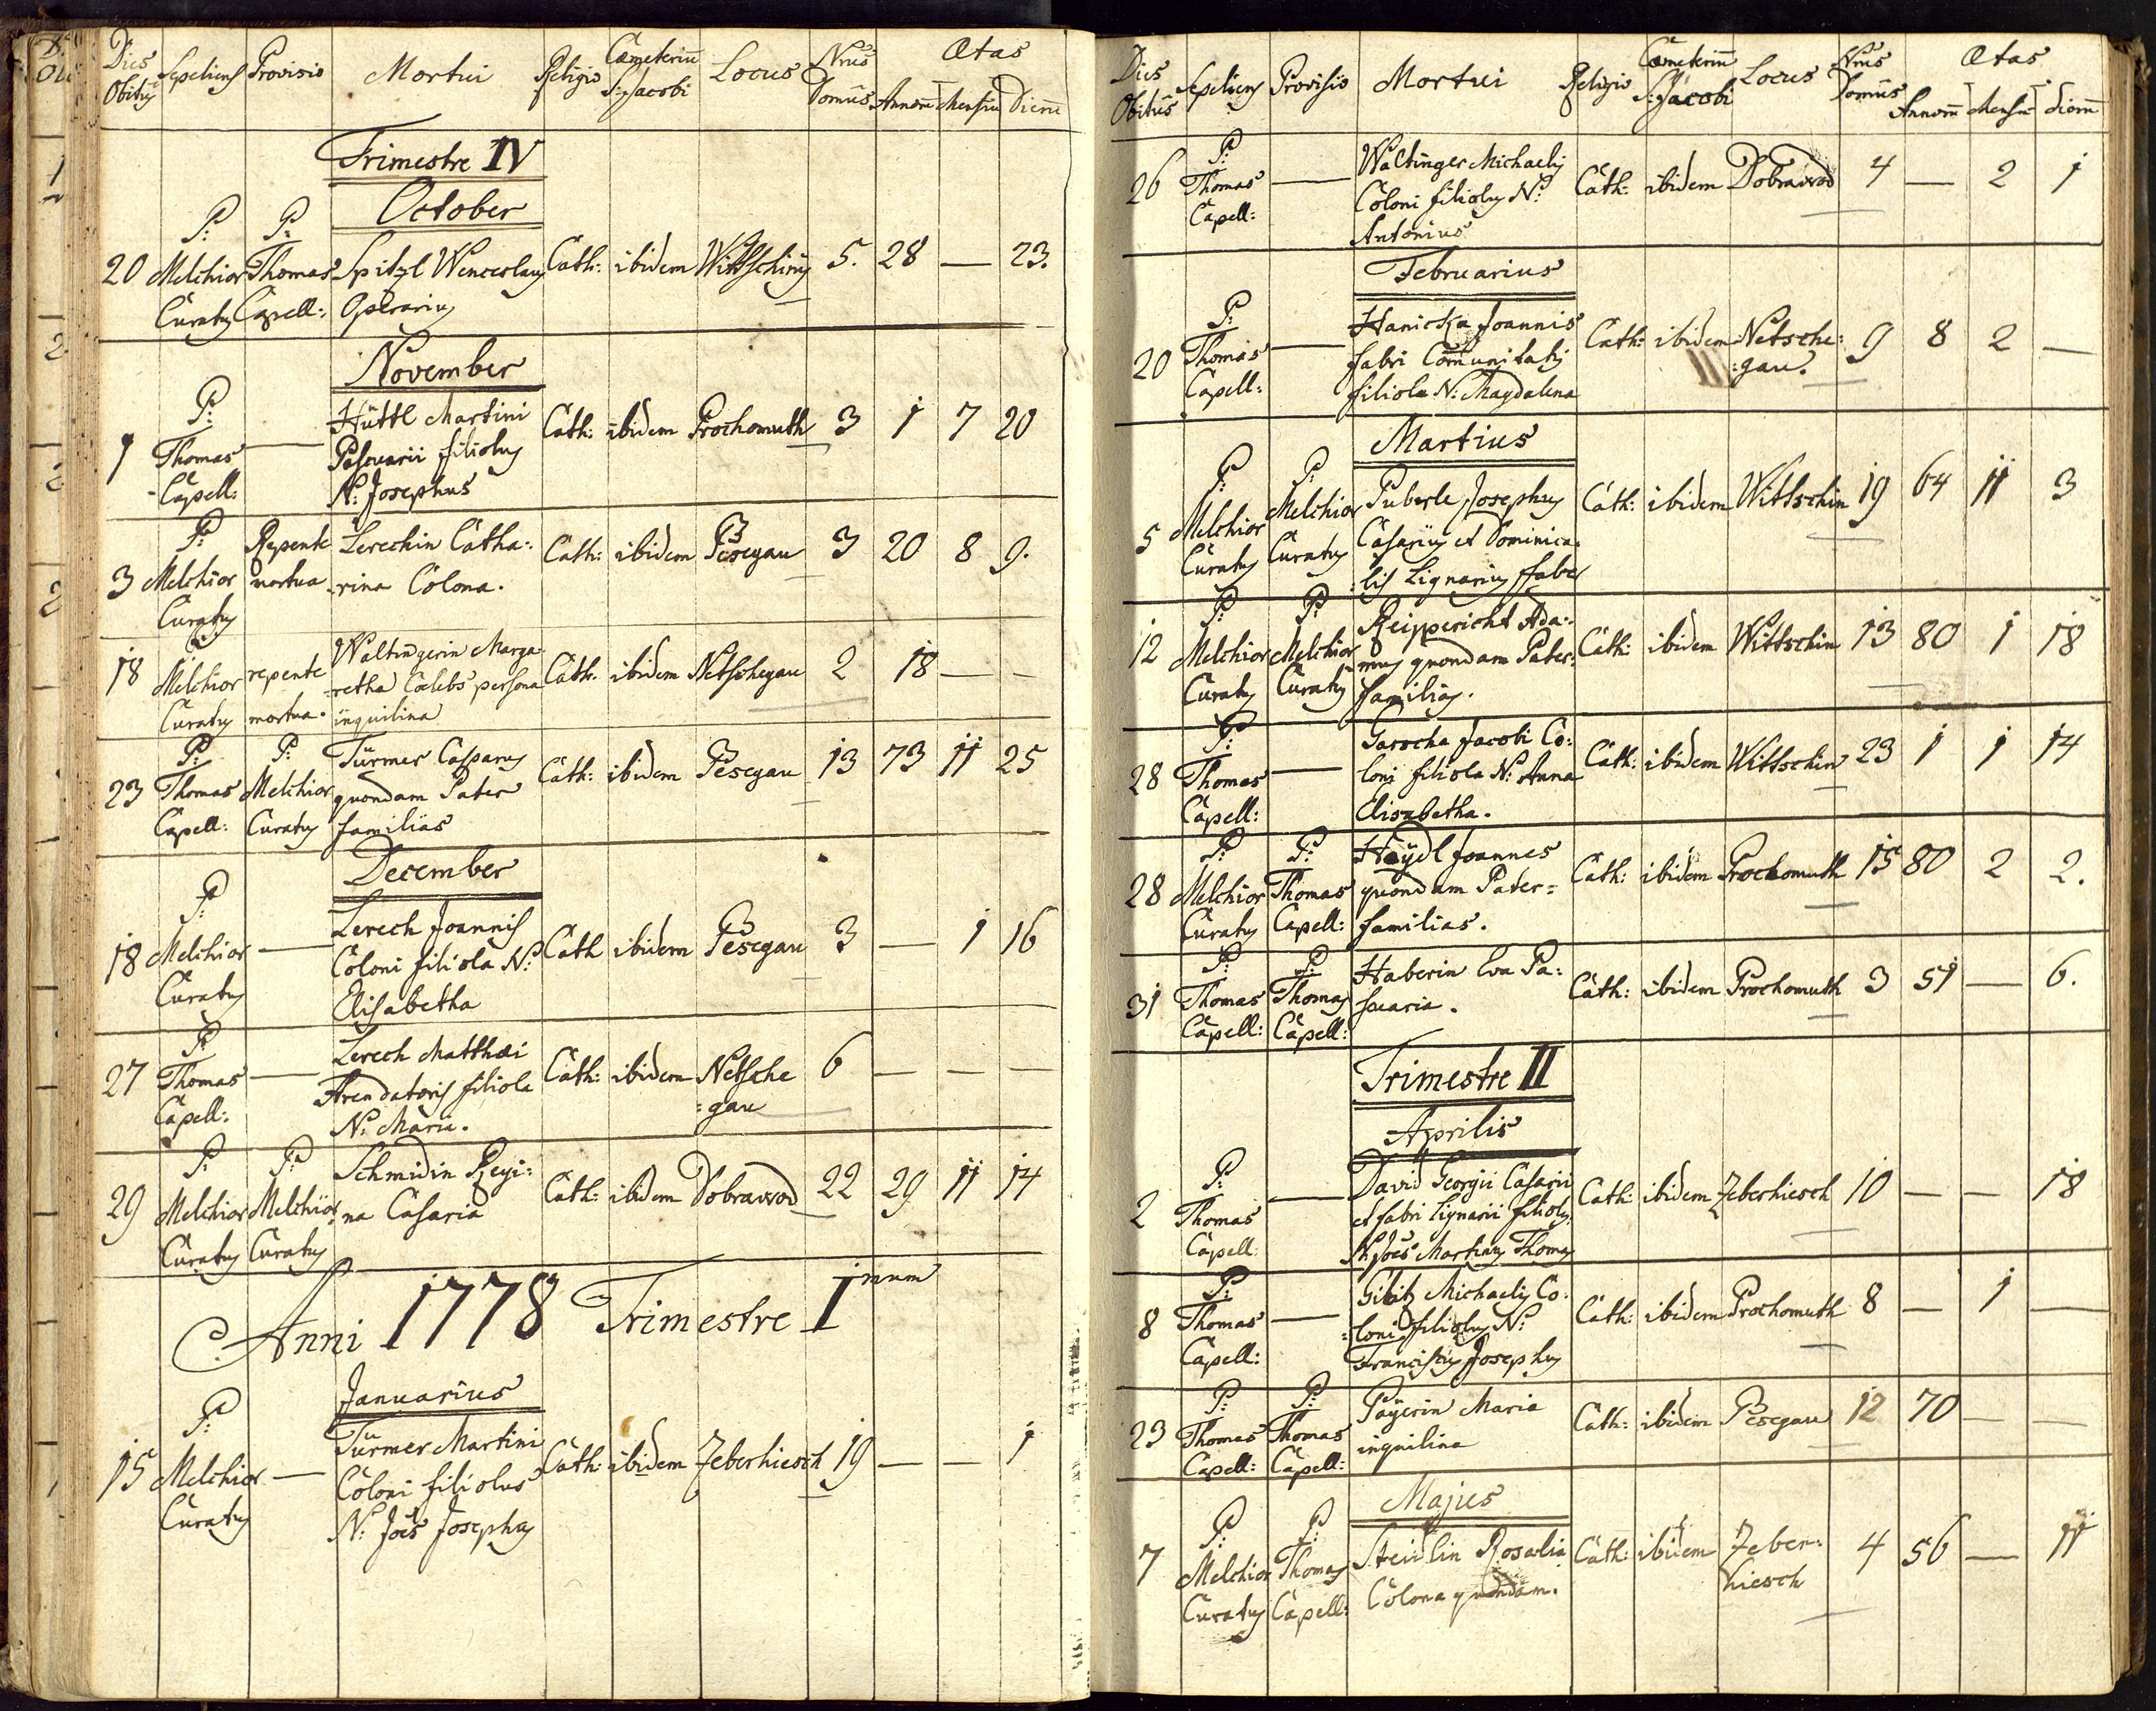 Dies Obitus Sepeliens Provisio Mortui Religio Cœmeteriū S: Jacobi Locus Nrus Domus Ætas Annorū Mensiū Dierū
Trimestre IV
October
20 P: Melchior Curatus P: Thomas Capell: Spitzl Wenceslaus Cath: ibidem Wittschin 5. 28 — 23.
Operarius
November
1 P: Thomas Capell: — Hüttl Martini Cath: ibidem Prochomuth 3 1 7 20
Pascuarii filiolus
N: Josephus
3 P: Melchior Curatus Repente mortua Lerechin Catha: Cath: ibidem Pesegau 3 20 8 9.
rina Colona.
18 Melchior Curatus repente mortua. Waltingerin Marga- Cath: ibidem Netschegau 2 18 — —
retha Cœlebs persona
inquilina
23 P: Thomas Capell: P: Melchior Curatus Türmer Casparus Cath: ibidem Pesegau 13 73 11 25
quondam Pater
familias
December
18 P: Melchior Curatus — Lerech Joannis Cath ibidem Pesegau 3 — 1 16
Coloni filiola N:
Elisabetha
27 P: Thomas Capell: — Lerech Matthæi Cath: ibidem Netsche 6 — — —
Arendatoris filiola :gau
N: Maria.
29 P: Melchior Curatus P: Melchior Curatus Schmidin Regi: Cath: ibidem Dobrawod 22 29 11 14
na Casaria
Anni 1778 Trimestre Imum
Januarius
15 P: Melchior Curatus — Türmer Martini Cath: ibidem Zeberhiesch 19 — — 1
Coloni filiolus
N: Joës Josephus
Dies Obitus Sepeliens Provisio Mortui Religio Cœmeteriū S: Jacobi Locus Nrus Domus Ætas Annorū Mensiū Dierū
26 P: Thomas Capell: — Waltinger Michaelis Cath: ibidem Dobrawod 4 — 2 1
Coloni filiolus N:
Antonius
Februarius
20 P: Thomas Capell: — Hanicka Joannis Cath: ibidem Netsche: 9 8 2 —
fabri Com̄unitatis :gau.
filiola N: Magdalena
Martius
5 P: Melchior Curatus P: Melchior Curatus Puberle Josephus Cath: ibidem Wittschin 19 64 11 3
Casarius et Dominica:
:lis Lignarius Faber
12 P: Melchior Curatus P: Melchior Curatus Reippericht Ada: Cath: ibidem Wittschin 13 80 1 18
mus quondam Pater:
familias.
28 P: Thomas Capell: — Garocha Jacobi Co: Cath: ibidem Wittschin 23 1 1 14
loni filiola N: Anna
Elisabetha.
28 P: Melchior Curatus P: Thomas Capell: Haÿdl Joannes Cath: ibidem Prochomuth 15 80 2 2.
quondam Pater=
familias.
31 P: Thomas Capell: P: Thomas Capell: Haberin Eva Pa: Cath: ibidem Prochomuth 3 51 — 6.
scuaria.
Trimestre II
Aprilis
2 P: Thomas Capell: — David Georgii Casarii Cath: ibidem Zeberhiesch 10 — — 18
et fabri Lignarii filiolus
N: Joës Martinus Thomas
8 P: Thomas Capell: — Gibitz Michaelis Co: Cath: ibidem Prochomuth 8 — 1 —
:loni filiolus N:
Franciscus Josephus
23 P: Thomas Capell: P: Thomas Capell: Paÿerin Maria Cath: ibidem Pesegau 12 70 — —
inquilina
Majus
7 P: Melchior Curatus P: Thomas Capell: Steidlin Rosalia Cath: ibidem Zeber: 4 56 — 11
Colona quondam. hiesch